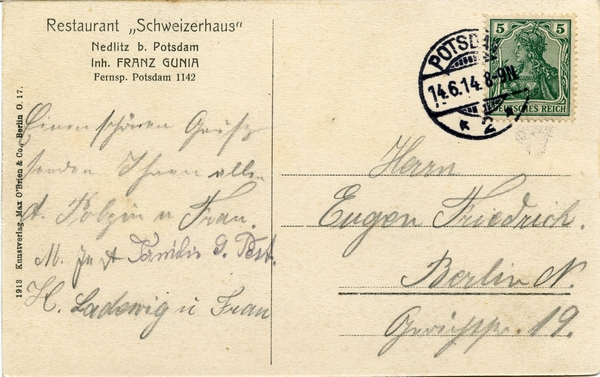 Restaurant „Schweizerhaus"
Nedlitz b. Potsdam
Inh. FRANZ GUNIA
Fernsp. Potsdam 1142
1913 Kunstverlag Max O'Brien & Co., Berlin O. 17.
Einen schönen Gruß
senden Ihnen allen
A. Polzin u Frau.
M.
Familie
H. Ladewig u Frau
5 5
DEUTSCHES REICH
POTSDAM
14.6.14. 8-9N.
* 2 *
Herrn
Eugen Friedrich.
Berlin N.
19.